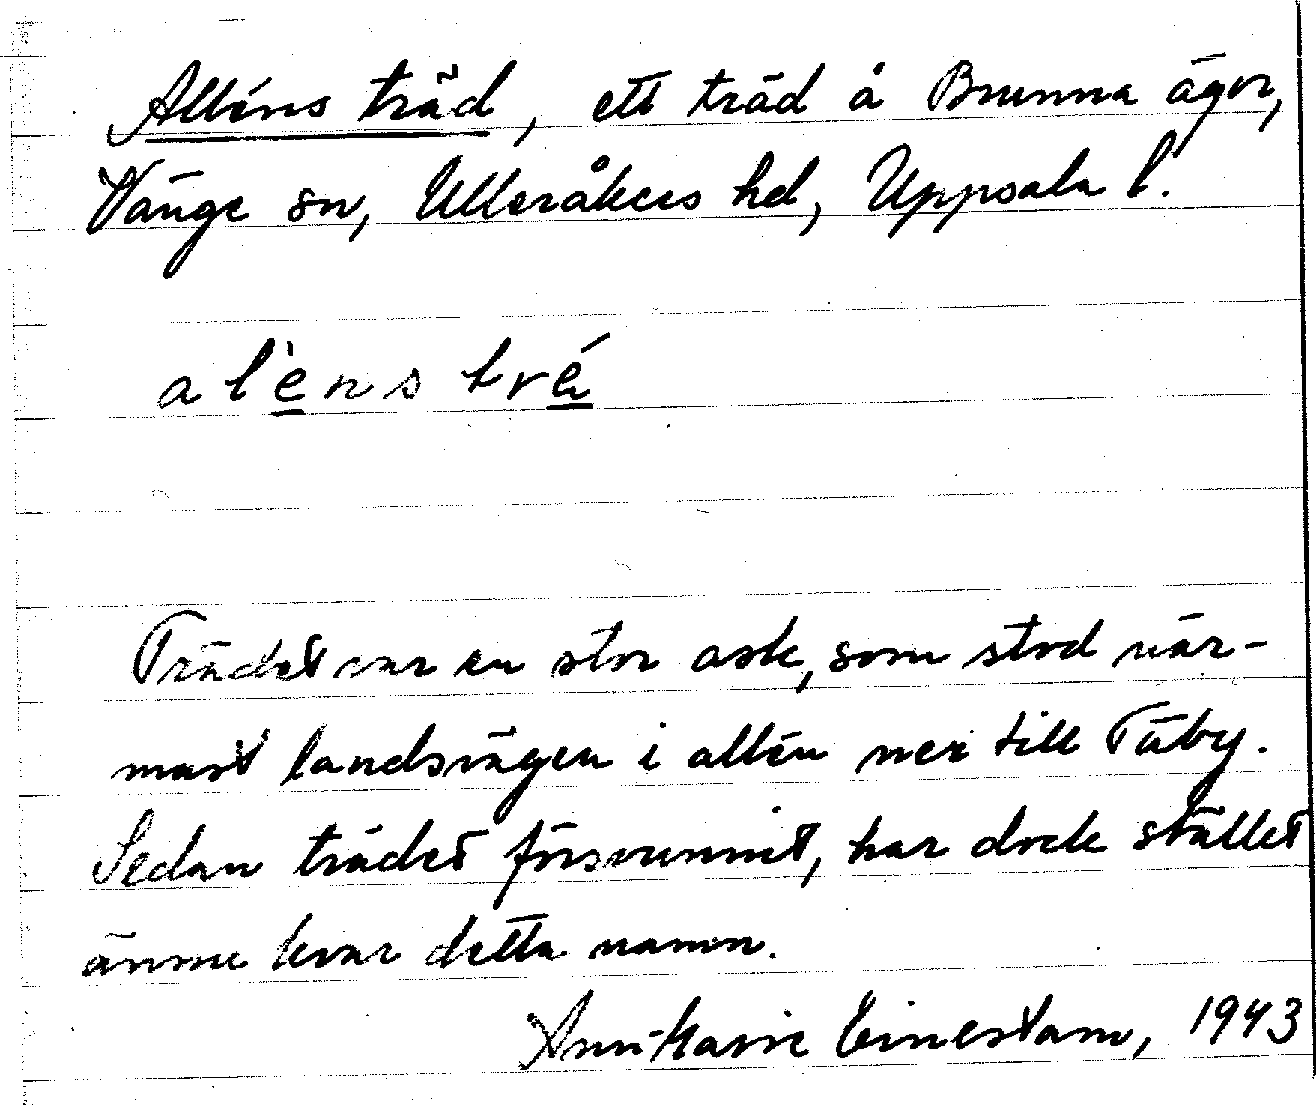 Alléns träd, ett träd å Brunna ägor,
Vänge sn, Ulleråkers hd, Uppsala l.
al'ens tré
Trädet var en stor ask, som stod när-
mast landsvägen i allén ner till Täby.
Sedan trädet försvunnit, har dock stället
ännu kvar detta namn.
Ann-Marie Einestam, 1943